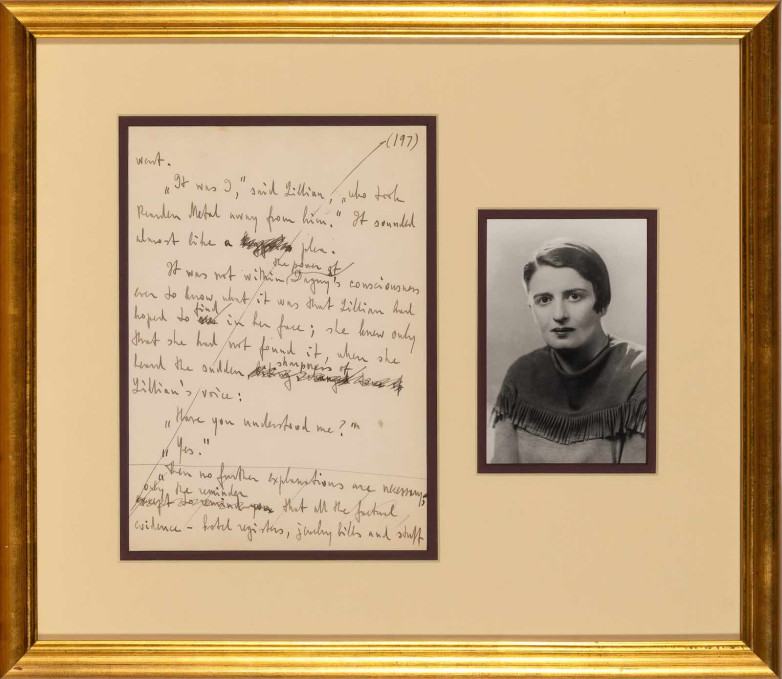 (197)
want.
„It was I,” said Lillian, „who took
Rearden Metal away from him.” It sounded
almost like a plea.
the power of
It was not within Dagny's consciousness
even to know what it was that Lillian had
find
hoped to in her face; she knew only
that she had not found it, when she
sharpness of
heard the sudden
Lillian's voice:
„Have you understood me?”
„Yes.”
„Then no further explanations are necessary,
only the reminder
except to remind you that all the factual
evidence – hotel registers, jewelry bills and stuff